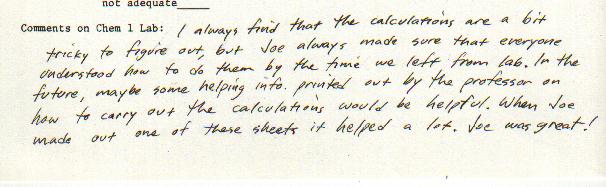 not adequate_____
Comments on Chem 1 Lab: I always find that the calculations are a bit
tricky to figure out, but Joe always made sure that everyone
understood how to do them by the time we left from lab. In the
future, maybe some helping info. printed out by the professor on
how to carry out the calculations would be helpful. When Joe
made out one of these sheets it helped a lot. Joe was great!